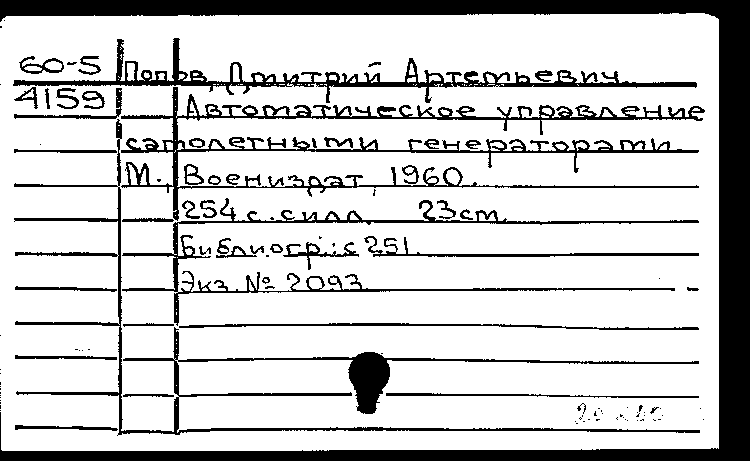 60-5 Попов, Дмитрий Артемьевич.
4159 Автоматическое управление
самолетными генераторами.
М., Воениздат, 1960.
254 с. силл. 23 cm.
Библиогр.: с 251.
Экз. № 2093.